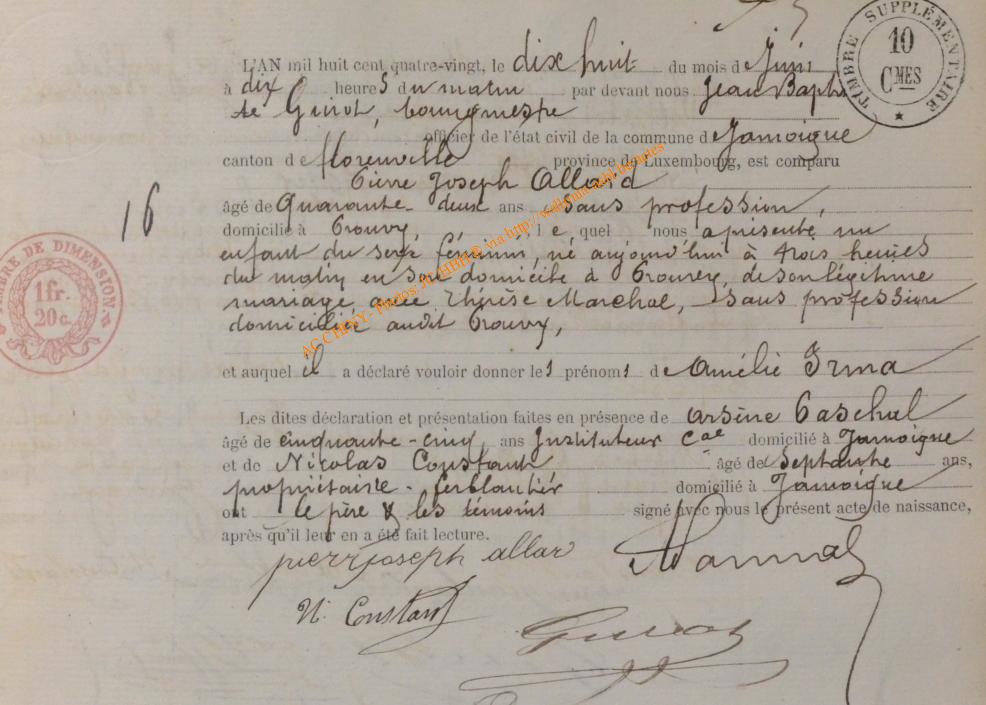 TIMBRE SUPPLÉMENTAIRE
10
CMES
L'AN mil huit cent quatre-vingt, le dix huit du mois de Juin
à dix heures du matin par devant nous Jean Baptis
te Guiot, bourgmestre
officier de l'état civil de la commune de Jamoigne
canton de florenville province de Luxembourg, est comparu
Pierre Joseph Allard
16
âgé de quarante-deux ans sans profession,
domicilié à Prouvy, le quel nous a présenté un
enfant du sexe féminin, né aujourd'hui à trois heures
du matin en son domicile à Prouvy, de son légitime
mariage avec Thérèse Marchal, sans profession
domiciliée audit Prouvy,
TIMBRE DE DIMENSION.
1 fr.
20 c.
et auquel il a déclaré vouloir donner les prénoms de Amélie Irma
Les dites déclaration et présentation faites en présence de Arsène Paschal
âgé de cinquante-cinq ans Instituteur Cal domicilié à Jamoigne
et de Nicolas Constant âgé de Septante ans,
propriétaire-ferblantier domicilié à Jamoigne
ont le père & les témoins signé avec nous le présent acte de naissance,
après qu'il leur en a été fait lecture.
pierr joseph allar
N. Constant
AGCCHISNY - Photos AGHBH © via http://wallonica